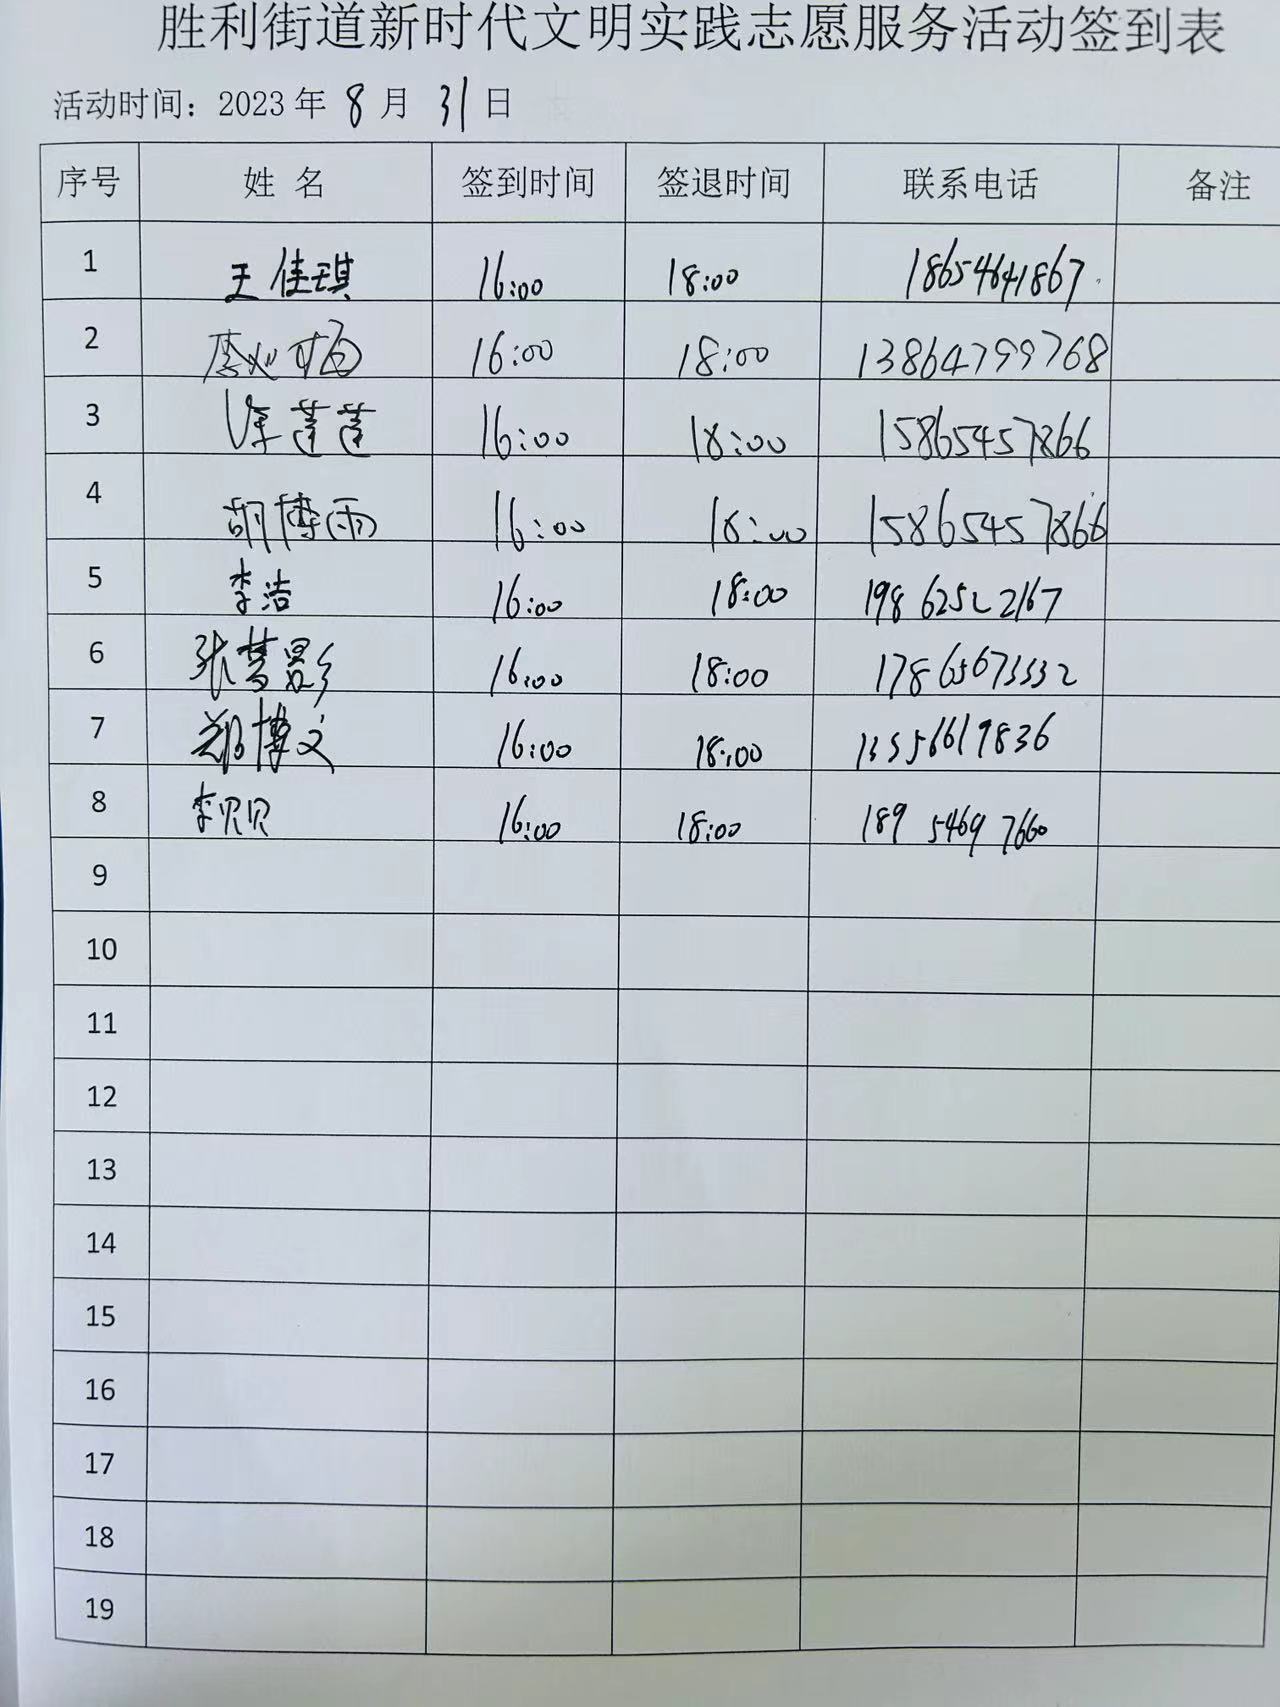 胜利街道新时代文明实践志愿服务活动签到表
活动时间：2023 年 8 月 31 日
序号 姓 名 签到时间 签退时间 联系电话 备注
1 王佳琪 16:00 18:00 18654641867
2 16:00 18:00 13864799768
3 徐莲莲 16:00 18:00 15865457866
4 胡博雨 16:00 18:00 15865457866
5 李洁 16:00 18:00 198 6252 2167
6 张梦影 16:00 18:00
7 郑博文 16:00 18:00 13556619836
8 李贝贝 16:00 18:00 189 5469 7660
9
10
11
12
13
14
15
16
17
18
19